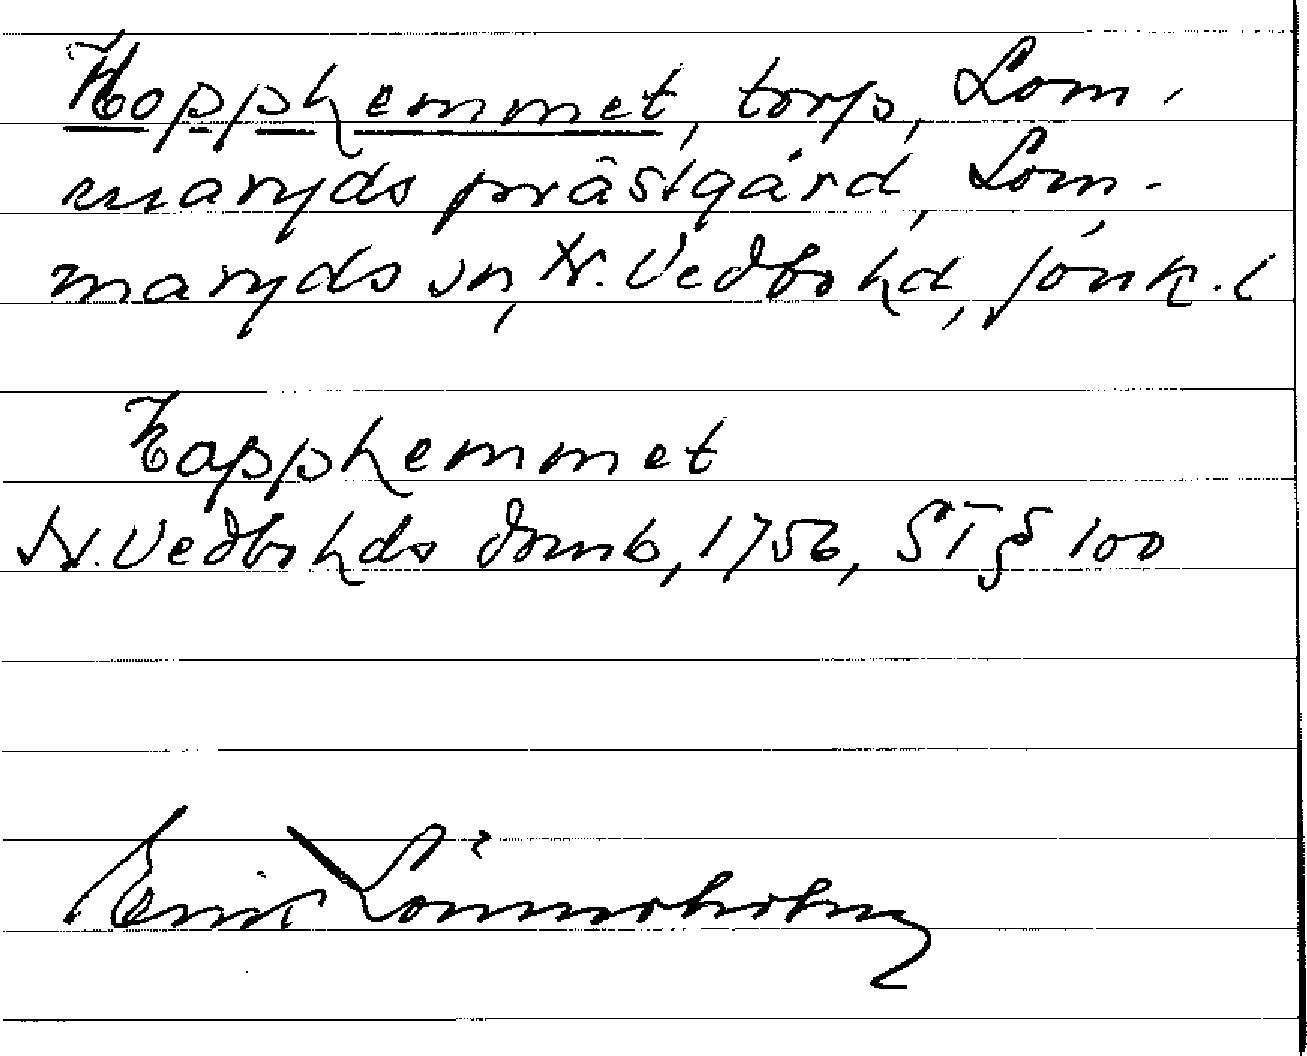 Kopphemmet, torp, Lom-
maryds prästgård, Lom-
maryds sn, N. Vedbo hd, Jönk. l
Kapphemmet
N. Vedbo hds domb, 1756, ST § 100
Erik Lönnerholm